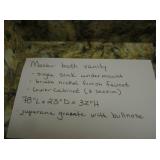 Master bath vanity
- single sink undermount
- brush nickel finish faucet
- lower cabinet (3 section)
78"L x 23"D x 32"H
juparana granite with bullnose